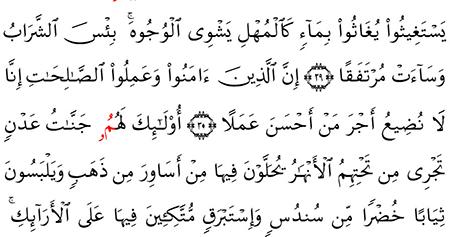 يَسۡتَغِيثُواْ يُغَاثُواْ بِمَآءٖ كَٱلۡمُهۡلِ يَشۡوِي ٱلۡوُجُوهَۚ بِئۡسَ ٱلشَّرَابُ
وَسَآءَتۡ مُرۡتَفَقًا ٢٩ إِنَّ ٱلَّذِينَ ءَامَنُواْ وَعَمِلُواْ ٱلصَّٰلِحَٰتِ إِنَّا
لَا نُضِيعُ أَجۡرَ مَنۡ أَحۡسَنَ عَمَلًا ٣٠ أُوْلَٰٓئِكَ لَهُمُۥ جَنَّٰتُ عَدۡنٖ
تَجۡرِي مِن تَحۡتِهِمُ ٱلۡأَنۡهَٰرُ يُحَلَّوۡنَ فِيهَا مِنۡ أَسَاوِرَ مِن ذَهَبٖ وَيَلۡبَسُونَ
ثِيَابًا خُضۡرٗا مِّن سُندُسٖ وَإِسۡتَبۡرَقٖ مُّتَّكِـِٔينَ فِيهَا عَلَى ٱلۡأَرَآئِكِۚ